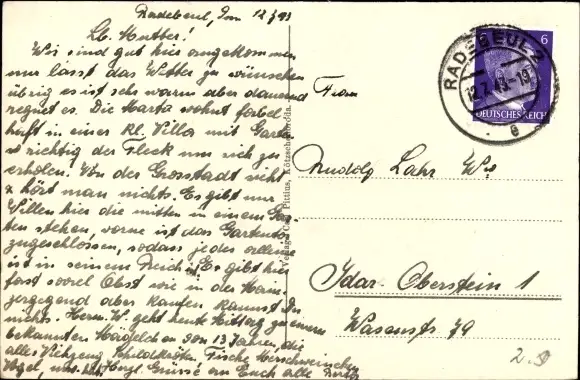 Radebeul, den 12.7.43
Lb. Mutter!
Wir sind gut hier angekommen
nur lässt das Wetter zu wünschen
übrig es ist sehr warm aber dauernd
regnet es. Die Marta wohnt fabel
haft in einer kl. Villa mit Garten
so richtig der Fleck um sich zu
erholen. Von der Grosstadt sieht
& hört man nichts. Es gibt nur
Villen hier die mitten in einem Gar-
ten stehen, vorne ist das Gartentor
zugeschlossen, sodass jedes alleine
ist in seinem Reich. Es gibt hier
fast soviel Obst wie in der
aber kaufen kannst Du
nichts. Herr W. geht heute Mittag zu einem
bekannten von 13 Jahren, die
alles Viehzeug Schildkröten Fische Meerschweinchen
Vögel, usw. Herzl. Grüsse an Euch alle
Verlag Carl Pittius, Kötzschenbroda.
RADEBEUL 2
12.7.43-19
e
6
DEUTSCHES REICH
Frau
Rudolf Lahr Wwe
Idar-Oberstein 1
Wasenstr. 79